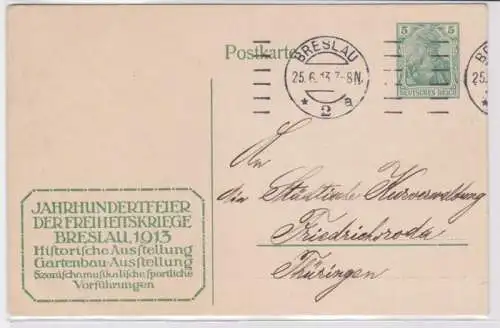 Postkarte
BRESLAU
25.6.13.7-8N.
* 2 a
5 5
DEUTSCHES REICH
BR
25.
*
An
die Städtische Kurverwaltung
Friedrichsroda
Thüringen
JAHRHUNDERTFEIER
DER FREIHEITSKRIEGE
BRESLAU, 1913
Historische Ausstellung
Gartenbau-Ausstellung
Szenisch, musikalische, sportliche
Vorführungen